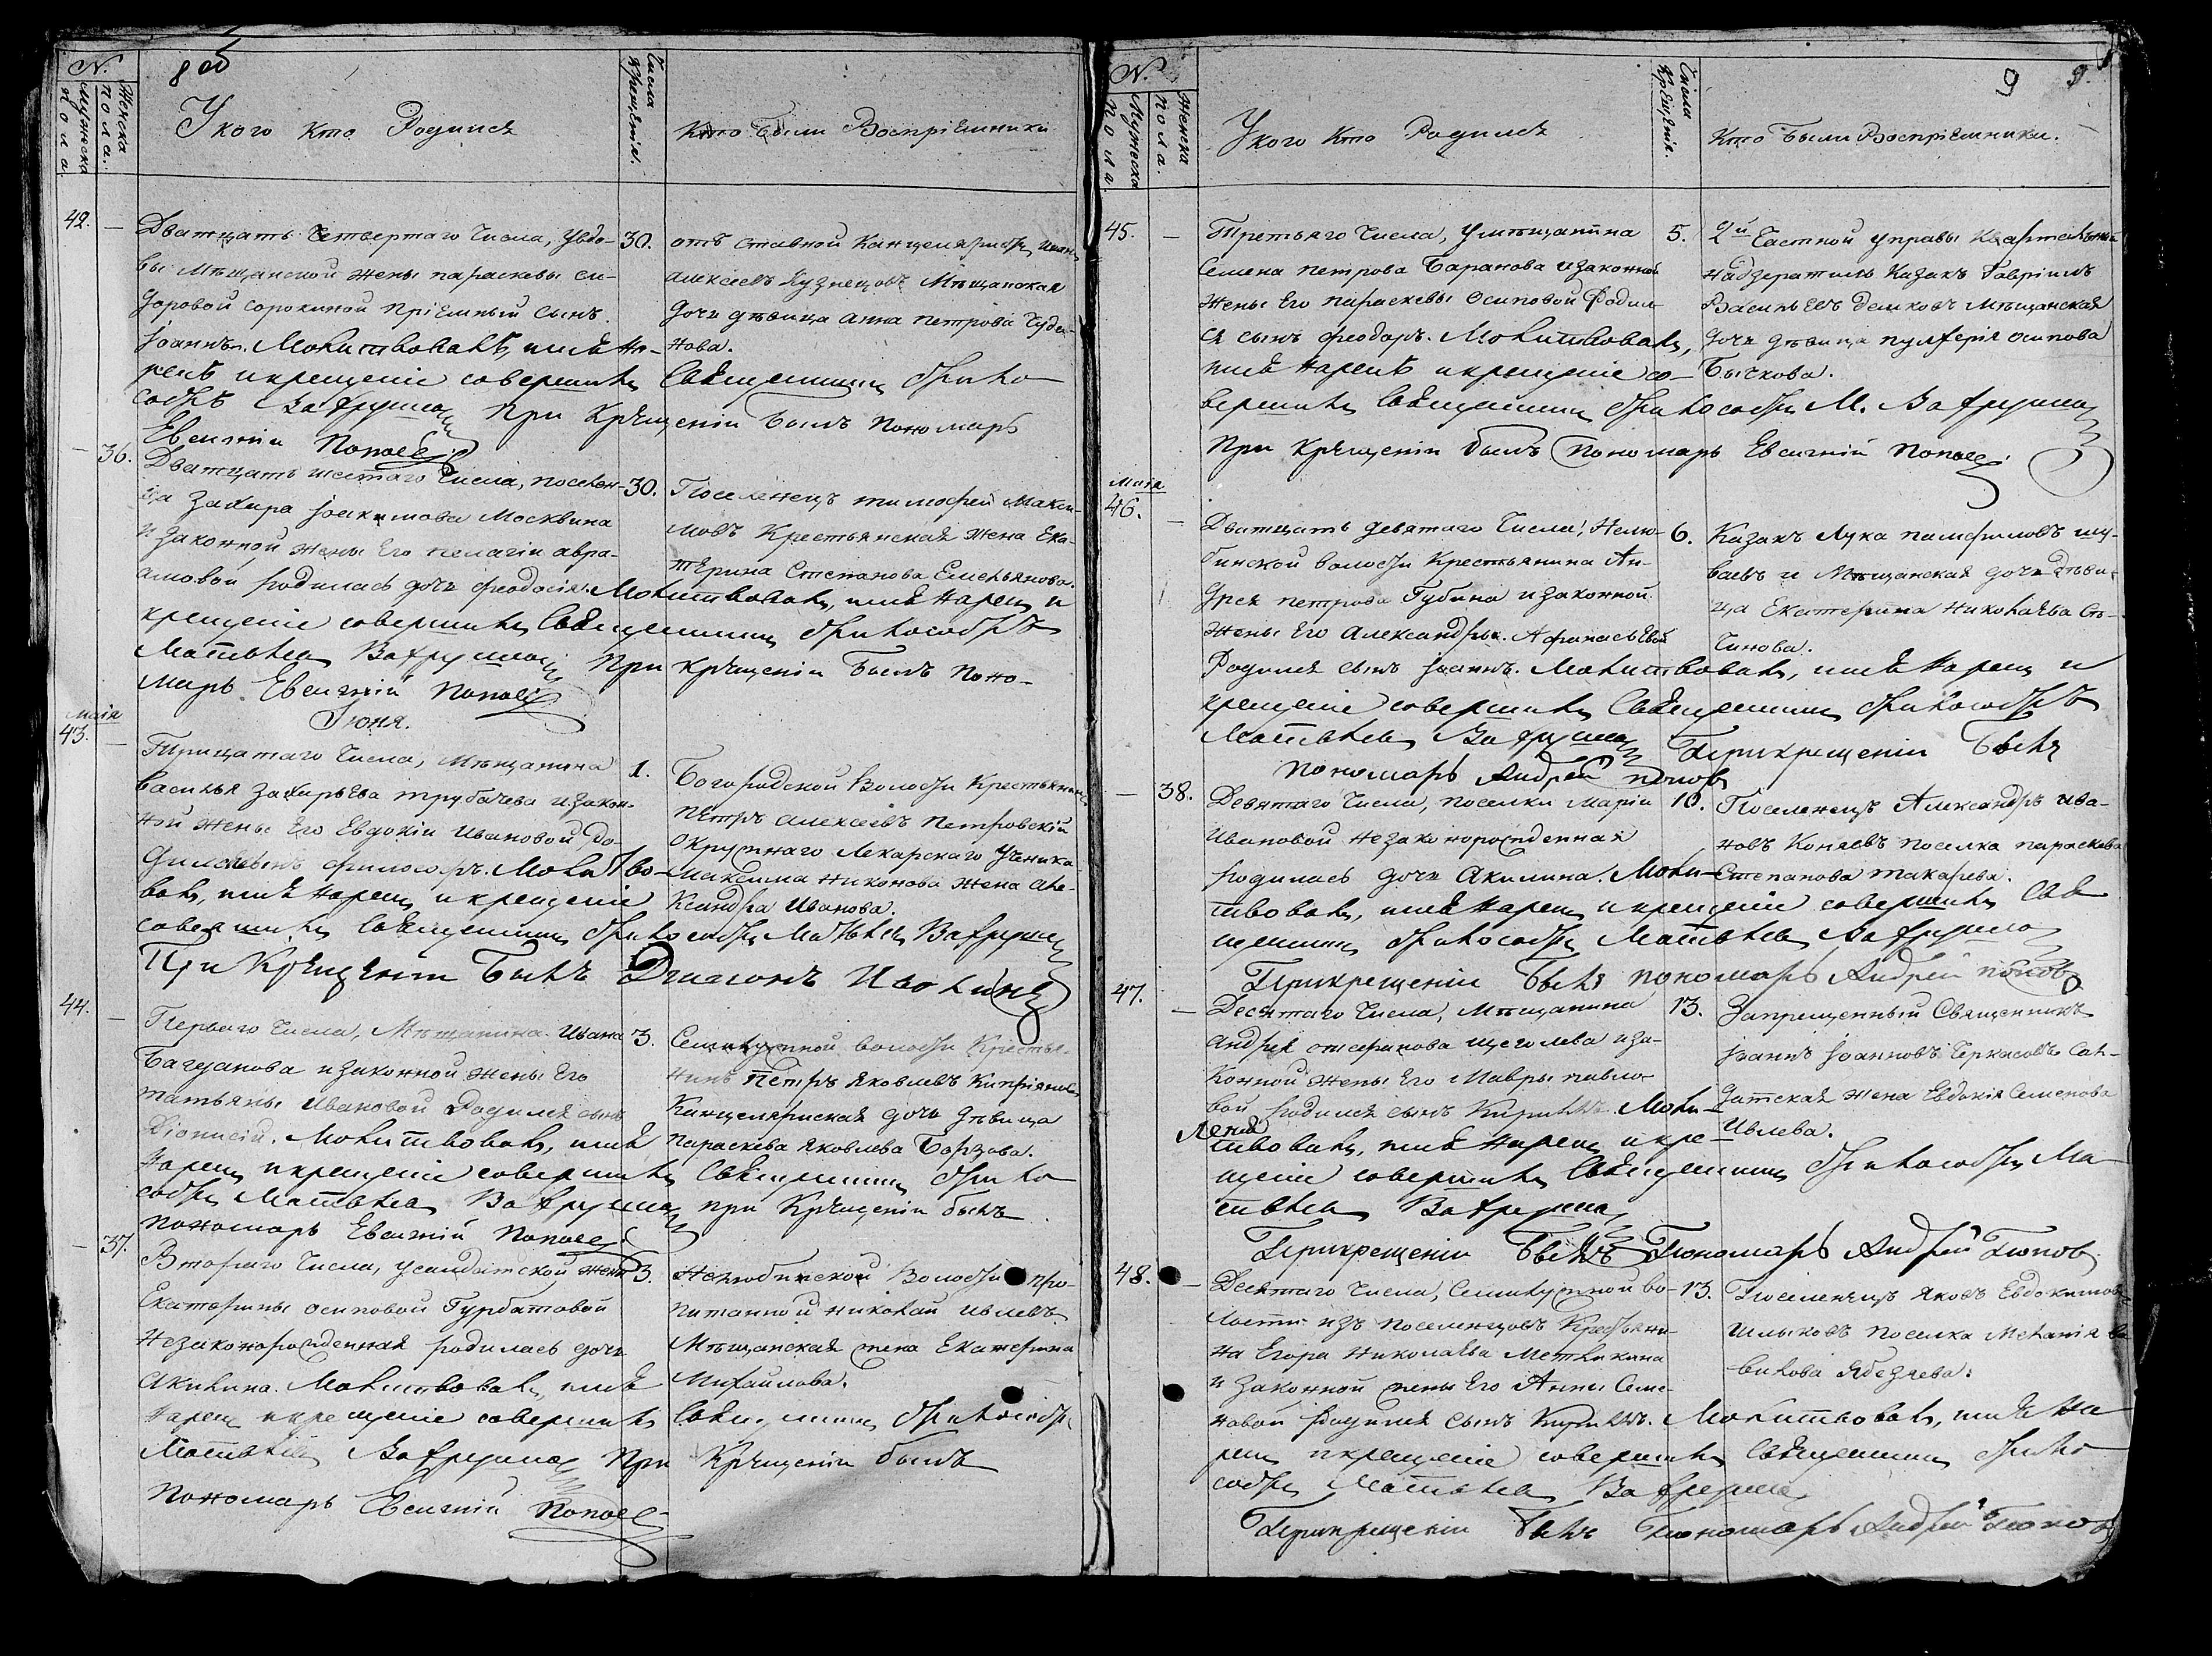 8 об
№.
Мужеска пола
Женска пола.
У кого кто Родился
Числа Крещенія.
Кто были Воспріемники
42.
Дватцать Четвертаго Числа, Увдо-
вы Мѣщанской жены параскевы си-
доровой сорокиной пріемный сынъ
Іоаннъ. Молитвовалъ, имя на-
рекъ и крещеніе совершилъ Священникъ
Вахрушевъ При Крещеніи былъ Пономарь
Евгеній Поповъ
30.
отъ ставной Канцеляристъ
алексѣевъ Кузнецовъ Мѣщанская
дочь дѣвица Анна петрова Чуди-
нова.
36.
Дватцать шестаго Числа, поселен-
ца Захара Іоакимова Москвина
и законной жены Его пелагіи авра-
амовой родилась дочь феодосія. Молитвовалъ, имя нарекъ и
крещеніе совершилъ Священникъ
Матвѣй Вахрушевъ При крещеніи Былъ Поно-
марь Евгеній Поповъ
30.
Поселенецъ тимофей Макси-
мовъ Крестьянская жена Ека-
терина Степанова Емельянова.
Іюня.
Маія
43.
Тритцатаго Числа, Мѣщанина
василья Захарьева трубачева и закон-
ной жены Его Евдокіи Ивановой Ро-
дился сынъ филосоръ. Молитво-
валъ, имя нарекъ и крещеніе
совершилъ Священникъ Матвѣй Вахрушевъ
При Крещеніи Былъ Діаконъ
1.
Богородской Волости Крестьянинъ
Петръ алексѣевъ Петровскій
Окружнаго Лекарскаго Ученика
максима Никонова жена але-
ксандра Иванова.
44.
Перваго Числа, Мѣщанина Ивана
Багданова и законной жены Его
татьяны Ивановой Родился сынъ
Діонисій. Молитвовалъ, имя
нарекъ и крещеніе совершилъ Священникъ
Матвѣй Вахрушевъ при Крещеніи былъ
пономарь Евгеній Поповъ
3.
Семилужной волости Крестья-
нинъ Петръ Яковлевъ Кипріяновъ
Канцелярская дочь дѣвица
параскева Яковлева Борзова.
37.
Втораго Числа, у салдатской жены
Екатерины осиповой Гурбатовой
незаконорожденная родилась дочь
Акилина. Молитвовалъ, имя
нарекъ и крещеніе совершилъ Священникъ
Матвѣй Вахрушевъ При Крещеніи былъ
Пономарь Евгеній Поповъ
3.
Нелюбинской Волости про-
питанной николай Ивлевъ
Мѣщанская жена Екатерина
Михайлова.
9
№.
Мужеска пола
Женска пола.
У кого кто Родился
Числа Крещенія.
Кто были Воспріемники.
45.
Третьяго Числа, У мѣщанина
Семена петрова Баранова и законной
жены Его параскевы осиповой Родил-
ся сынъ феодоръ. Молитвовалъ,
имя нарекъ и крещеніе со-
вершилъ Священникъ М. Вахрушевъ
При Крещеніи былъ Пономарь Евгеній Поповъ
5.
2й Частной управы Квартальный
надзератель Казакъ Гавріилъ
Васильевъ Демковъ Мѣщанская
дочь дѣвица пулхерія осипова
Бычкова.
Маія
46.
Дватцать девятаго Числа, Нелю-
бинской волости Крестьянина Ан-
дрея петрова Губина и законной
жены Его александры Афанасьевой
Родился сынъ Іоаннъ. Молитвовалъ, имя нарекъ и
крещеніе совершилъ Священникъ
Матвѣй Вахрушевъ При крещеніи Былъ
пономарь Андрей поповъ
6.
Казакъ Лука памфиловъ шу-
ваевъ и Мѣщанская дочь дѣви-
ца Екатерина Николаева Съ-
чинова.
38.
Девятаго Числа, поселки Маріи
Ивановой незаконорожденная
родилась дочь Акилина. Моли-
твовалъ, имя нарекъ и крещеніе совершилъ Свя-
щенникъ Матвѣй Вахрушевъ
При крещеніи Былъ пономарь Андрей поповъ
10.
Поселенецъ Александръ ива-
новъ Коняевъ поселка параскева
Степанова макарева.
47.
Десятаго Числа, Мѣщанина
андрея щеголева и за-
конной жены Его Мавры павло-
вой родился сынъ Кириллъ. Моли-
твовалъ, имя нарекъ и кре-
щеніе совершилъ Священникъ Ма-
твѣй Вахрушевъ
При крещеніи Былъ Пономарь Андрей Поповъ
13.
Запрещенный Священникъ
Іоаннъ Іоанновъ Черкасовъ Сал-
датская жена Евдокія Семенова
Ивлева.
48.
Десятаго Числа, Семилужной во-
лости изъ поселенцовъ Крестьяни-
на Егора Николаева Метлкина
и законной жены Его Анны Семе-
новой Родился сынъ Кириллъ. Молитвовалъ, имя на-
рекъ и крещеніе совершилъ Священникъ
Матвѣй Вахрушевъ
При крещеніи Былъ Пономарь Андрей Поповъ
13.
Поселенецъ Яковъ Евдокимовъ
Шлыковъ поселка Меланія са-
вилова Ябезяева.